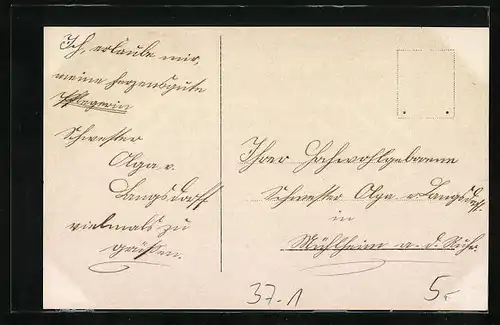 Ich erlaube mir,
meine herzensgute
Pflegerin
Schwester
Olga v.
Langsdorff
vielmals zu
grüßen.
Ihrer Hochwohlgeboren
Schwester Olga v. Langsdorff.
in
Mühlheim a. d. Ruhr.
37.1
5,-